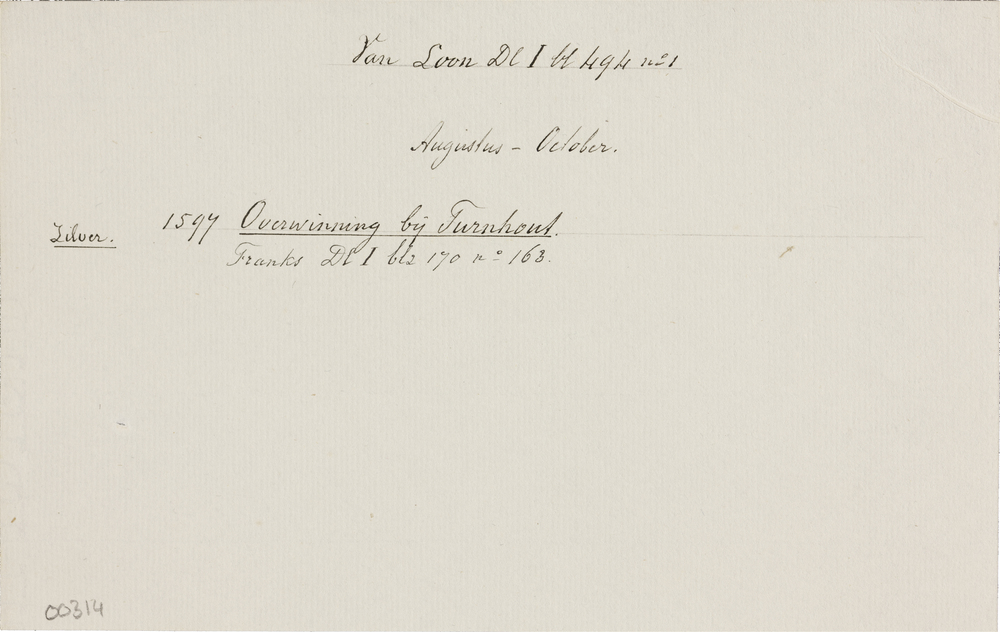 Van Loon Dl I bl 494 nº 1
Augustus - October.
Zilver. 1597 Overwinning bij Turnhout.
Franks Dl I blz 170 nº 163.
00314